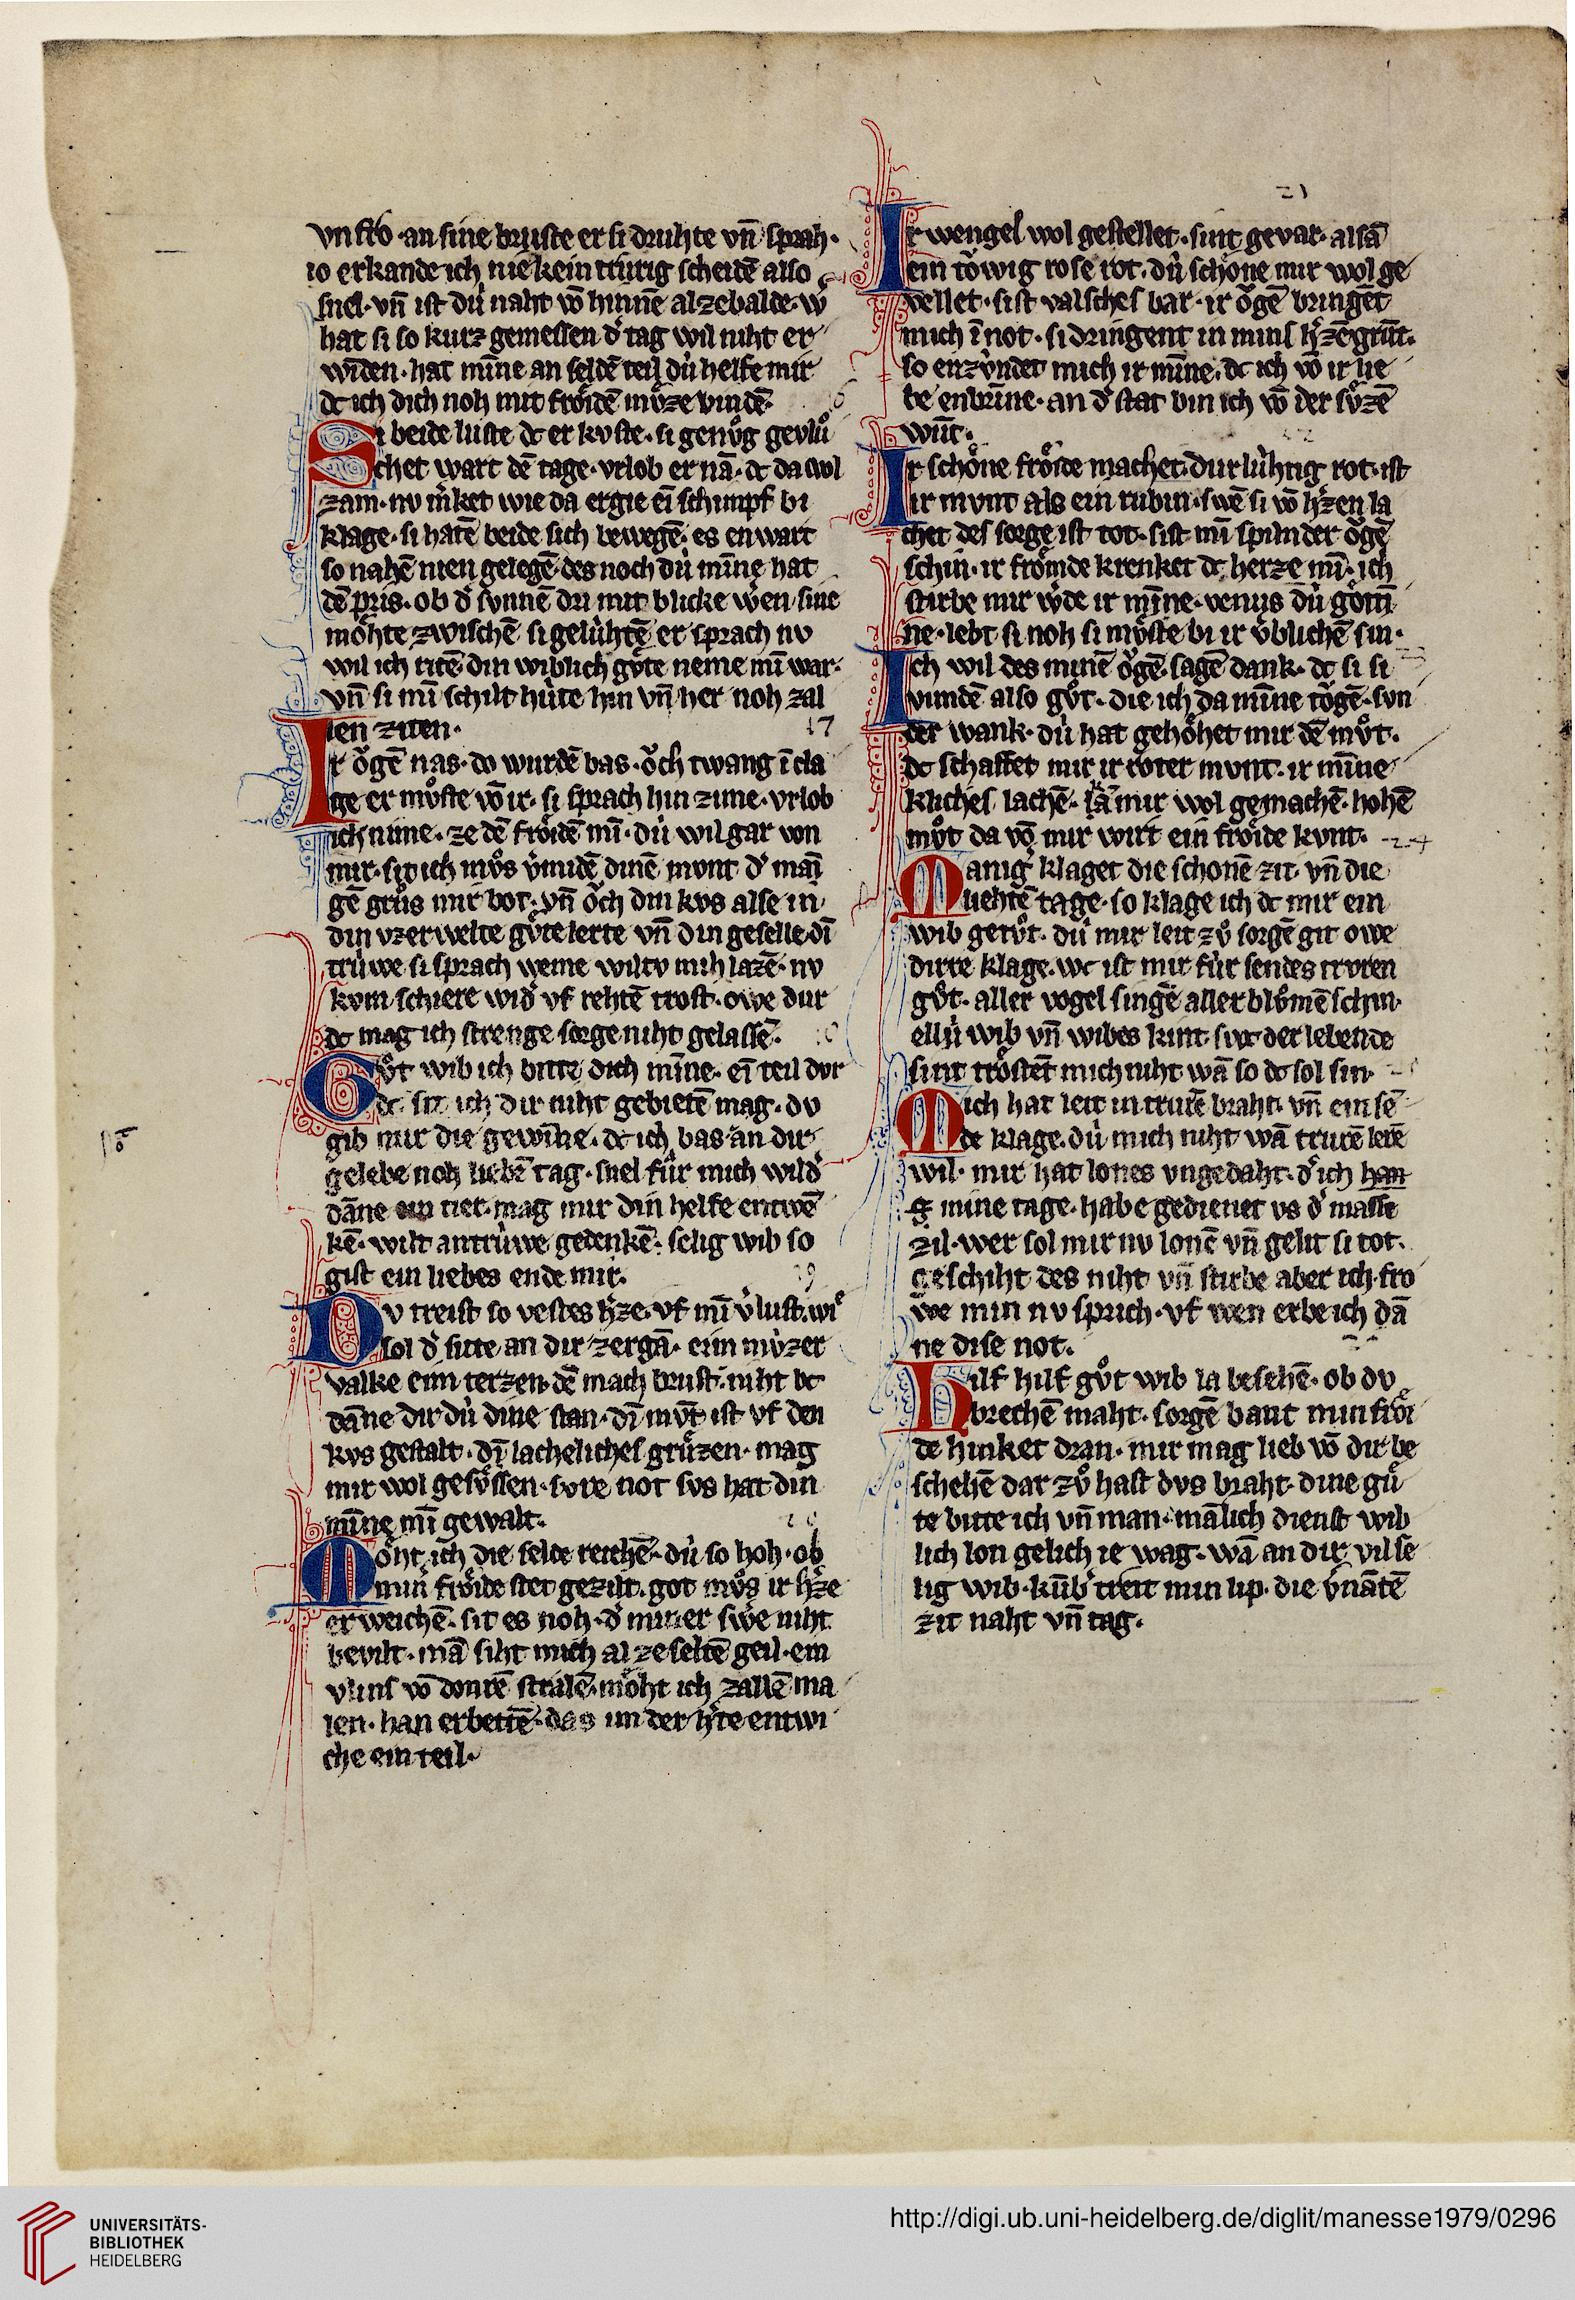 vn ſtb · an ſine bruſte er ſi druhte vn̄ ſprah ·
io erkande ich nie kein trurig ſcheidē alſo
ſnel · vn̄ iſt dú naht vō hinnē al zebalde · w
hat ſi ſo kurz gemeſſen d͛ tag wil niht er
widen · hat miñe an ſeldē teil dú helfe mir
dc ich dich noh mit frôidē mv̊ze vindē ·
Si beide luſte dc er kvſte · ſi genv̊g gevlů
chet wart dē tage · vrlob er nā · dc da wol
zam · nv m͛ket wie da ergie eī ſchimpf bi
klage · ſi hatē beide ſich bewegē · es enwart
ſo nahē nien gelegē · des noch dú miñe hat
dē pris · ob d͛ ſvnnē dri mit blicke w͛en ſine
môhte zwiſchē ſi gelúhtē er ſprach nv
wil ich ritē din wiblich gv̊te neme mī war ·
vn̄ ſi mī ſchilt húte hin vn̄ her noh zal
len ziten ·
17
Ir ǒgē nas · do wurdē bas · ǒch twang ī cla
ge er mv̊ſte vō ir · ſi ſprach hin zime · vrlob
ich nime · ze dē frôidē mī · dú wil gar von
mir · ſit ich mv̊s v͛midē dinē mvnt d͛ mani
gē grůs mir bot · vn̄ ǒch din kvs alſe in
din vzerwelte gv̊te lerte vn̄ din geſelle dī
trúwe ſi ſprach weme wiltv mih lazē · nv
kvm ſchiere wid͛ vf rehtē troſt · owe dur
dc mag ich ſtrenge ſorge niht gelaſſē ·
Gv̊t wib ich bitte dich miñe · eī teil dvr
dc ſit ich dir niht gebietē mag · dv
gib mir die gewiñe · dc ich bas an dir
gelebe noh liebē tag · ſnel fúr mich wild͛
dāne ein tier · mag mir din helfe entwē
kē · wilt an trúwe gedenkē · ſelig wib ſo
giſt ein liebes ende mir ·
19
Dv treiſt ſo veſtes h͛ze · vf mī v͛luſt · wie
ſol d͛ ſitte an dir zergā · ein mv̊zer
valke ein terzen · dē mach bruſt · niht bc
dāne dir dú dine ſtan · dī mv̊t iſt vf den
kvs geſtalt · dī lachelicheſ grůzen · mag
mir wol geſv̊ſſen · ſvre not ſvs hat din
miñe mī gewalt ·
Môht ich die ſelde reichē · dú ſo hoh · ob
miñ frôide ſtet gezilt · got mv̊s ir h͛ze
er weichē · ſit es noh · d͛ miner ſw͛e niht
bevilt · mā ſiht mich al ze ſeltē geil · ein
vlinſ vō donrē ſtralē · môht ich zallē ma
len · han erbettē · das im der h͛te entwi
che ein teil ·
21
Ir wengel wol geſtellet · ſint gevar · alſā
ein tǒwig roſe rot · dú ſchône mir wol ge
vellet · ſiſt valſcheſ bar · ir ǒgē bringēt
mich ī not · ſi dringent in minſ h͛zē grūt ·
ſo enzúndet mich ir miñe · dc ich vō ir lie
be enbriñe · an d͛ ſtat bin ich vō der ſv̊zē
wūt ·
Ir ſchône frôide machet · durlúhtig rot · iſt
ir mvnt als ein rubin · ſwē ſi vō h͛zen la
chet des ſorge iſt tot · ſiſt mī ſpilnder ǒgē
ſchin · ir frômde krenket dc herze mī · ich
ſtirbe mir w͛de ir miñe · venus dú gôtti
ne · lebt ſi noh ſi mv̊ſte bi ir v͛blichē ſin ·
Ich wil des minē ǒgē · ſagē dank · dc ſi ſi
vundē alſo gv̊t · die ich da miñe tǒgē · ſvn
der wank · dú hat gehôhet mir dē mv̊t ·
dc ſchaffet mir ir roter mvnt · ir miñe
klicheſ lachē · kā mir wol gemachē · hohē
mv̊t da vō mir wirt ein frôide kvnt ·
24
Manig͛ klaget die ſchonē zit · vn̄ die
liehtē tage · ſo klage ich dc mir ein
wib getv̊t · dú mir leit zv̊ ſorgē git owe
dirre klage · wc iſt mir fúr ſendes trvren
gv̊t · aller vogel ſingē aller blv̊mē ſchin ·
ellú wib vn̄ wibes kint · ſwc der lebende
ſint trôſtēt mich niht wā ſo dc ſol ſin ·
Mich hat leit in trurē braht · vn̄ ein ſē
de klage · dú mich niht wā trurē lerē
wil · mir hat lones vngedaht · d͛ ich han
mine tage · habe gedienet vs d͛ maſſe
zil · wer ſol mir nv lonē vn̄ gelit ſi tot ·
geſchiht des niht vn̄ ſtirbe aber ich · fro
we min nv ſprich · vf wen erbe ich dā
ne diſe not ·
Hilf hilf gv̊t wib la beſehē · ob dv
brechē maht · ſorgē bant min frôi
de hinket dran · mir mag lieb vō dir be
ſchehē dar zv̊ haſt dvs braht · dine gů
te bitte ich vn̄ man · mālich dienſt wib
lich lon gelich ie wag · wā an dir vil ſe
lig wib · kūb͛ treit min lip · die v͛nātē
zit naht vn̄ tag ·
UNIVERSITÄTS-
BIBLIOTHEK
HEIDELBERG
http://digi.ub.uni-heidelberg.de/diglit/manesse1979/0296